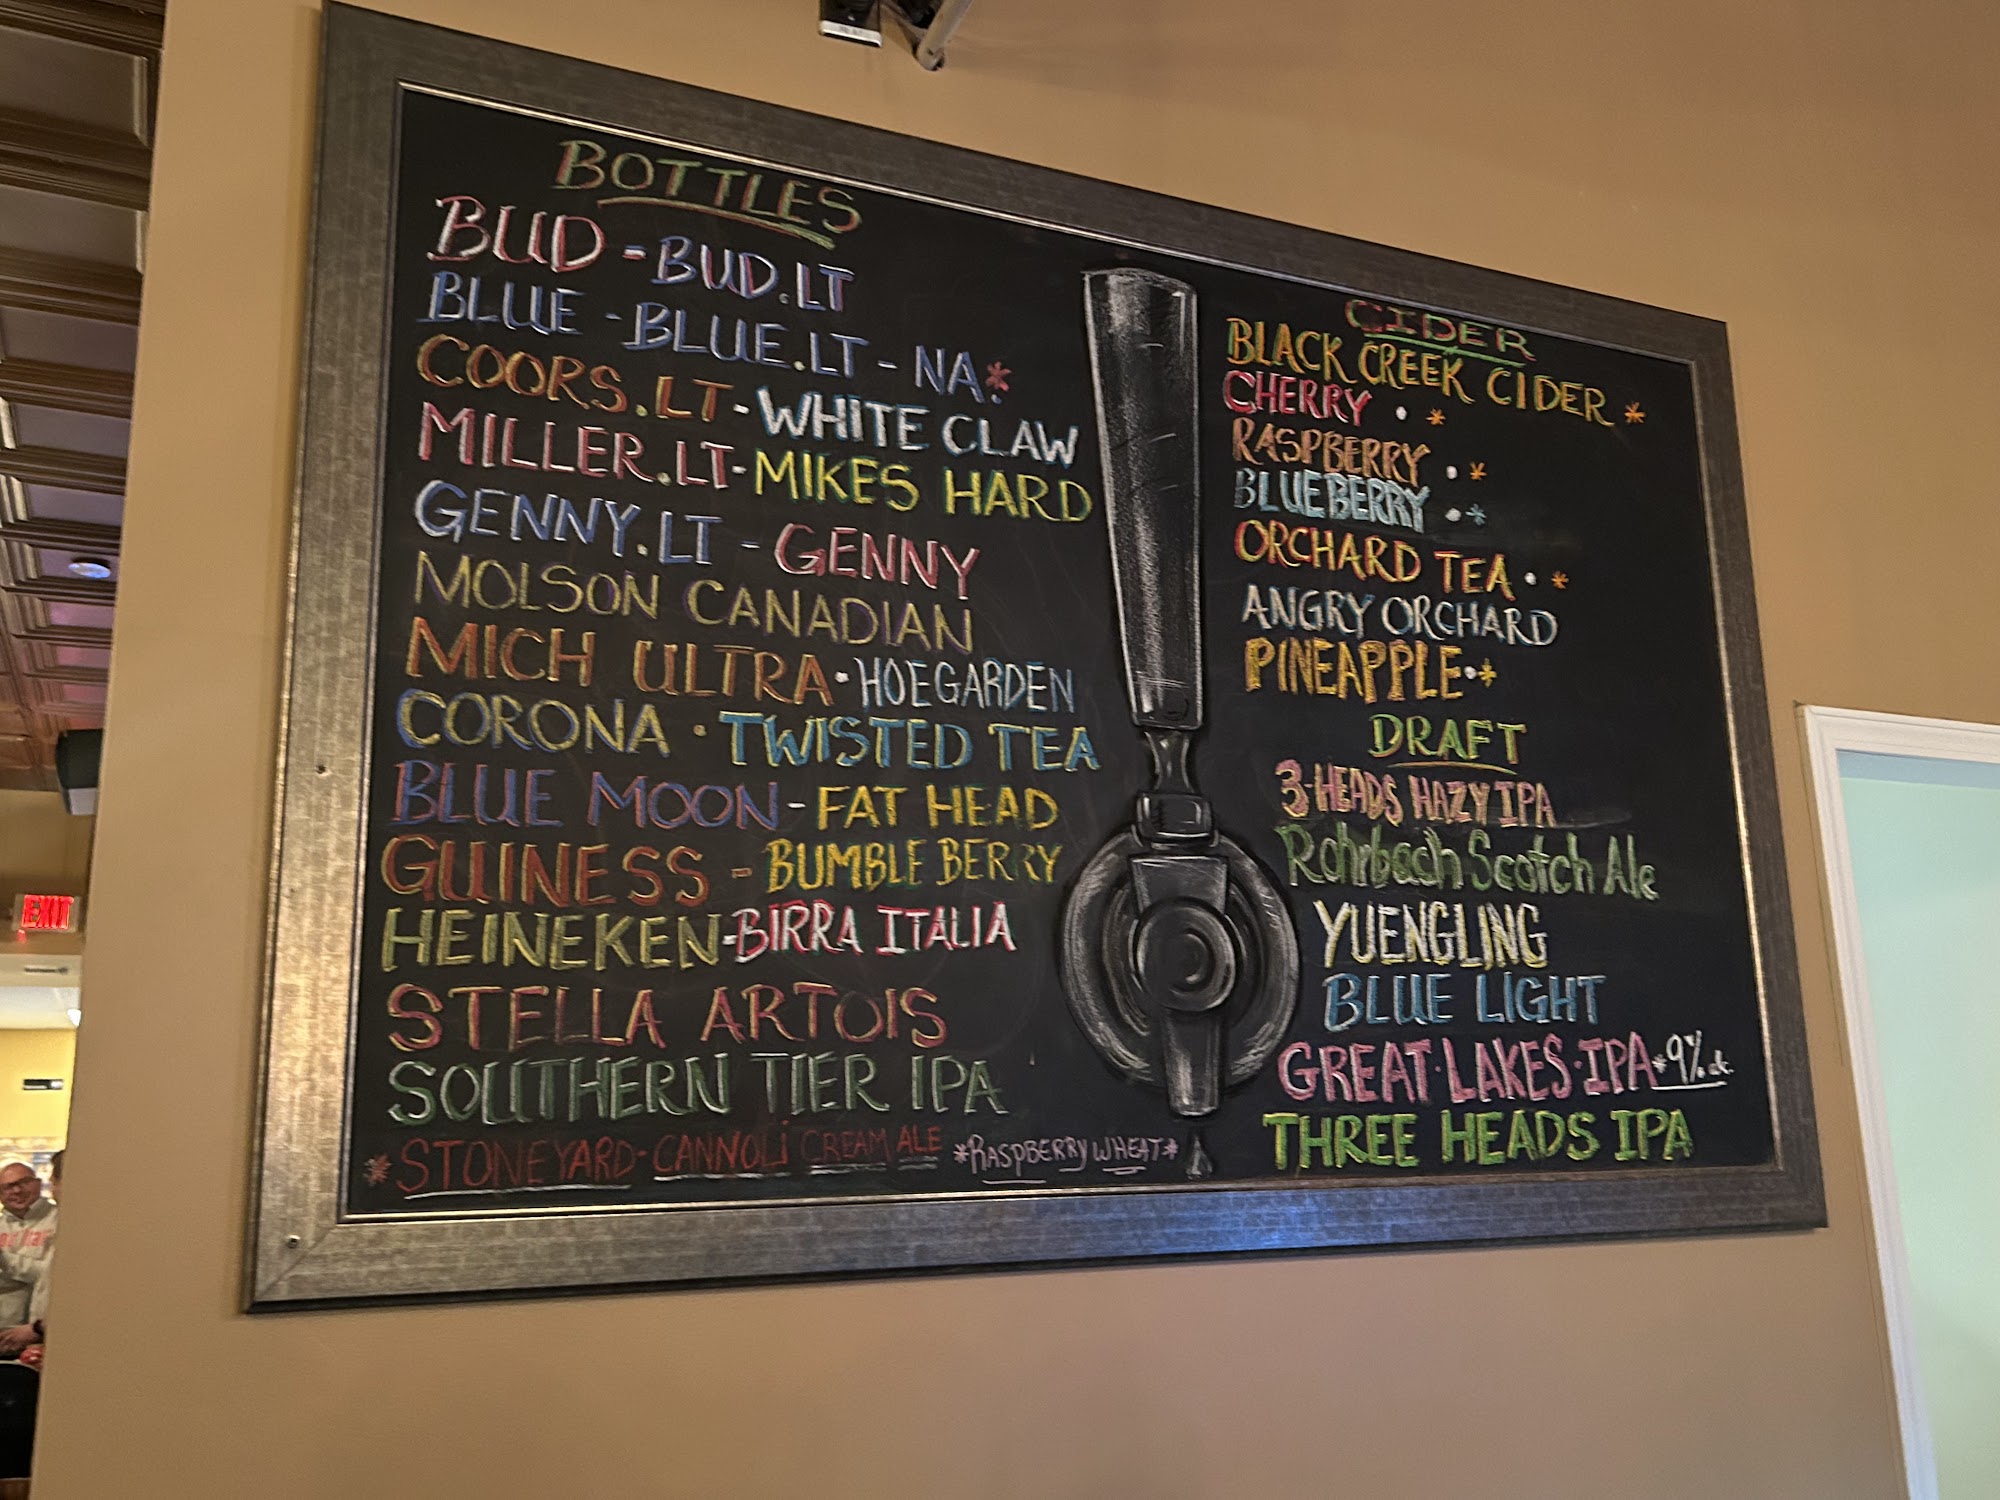 BOTTLES
BUD - BUD.LT
BLUE - BLUE.LT - NA.*
COORS.LT - WHITE CLAW
MILLER.LT - MIKES HARD
GENNY.LT - GENNY
MOLSON CANADIAN
MICH ULTRA · HOEGARDEN
CORONA · TWISTED TEA
BLUE MOON - FAT HEAD
GUINESS - BUMBLE BERRY
HEINEKEN - BIRRA ITALIA
STELLA ARTOIS
SOUTHERN TIER IPA
* STONEYARD - CANNOLI CREAM ALE *RASPBERRY WHEAT*
CIDER
BLACK CREEK CIDER *
CHERRY · *
RASPBERRY · *
BLUEBERRY · *
ORCHARD TEA · *
ANGRY ORCHARD
PINEAPPLE · *
DRAFT
3-HEADS HAZY IPA
Rohrbach Scotch Ale
YUENGLING
BLUE LIGHT
GREAT·LAKES·IPA *9%
THREE HEADS IPA
EXIT